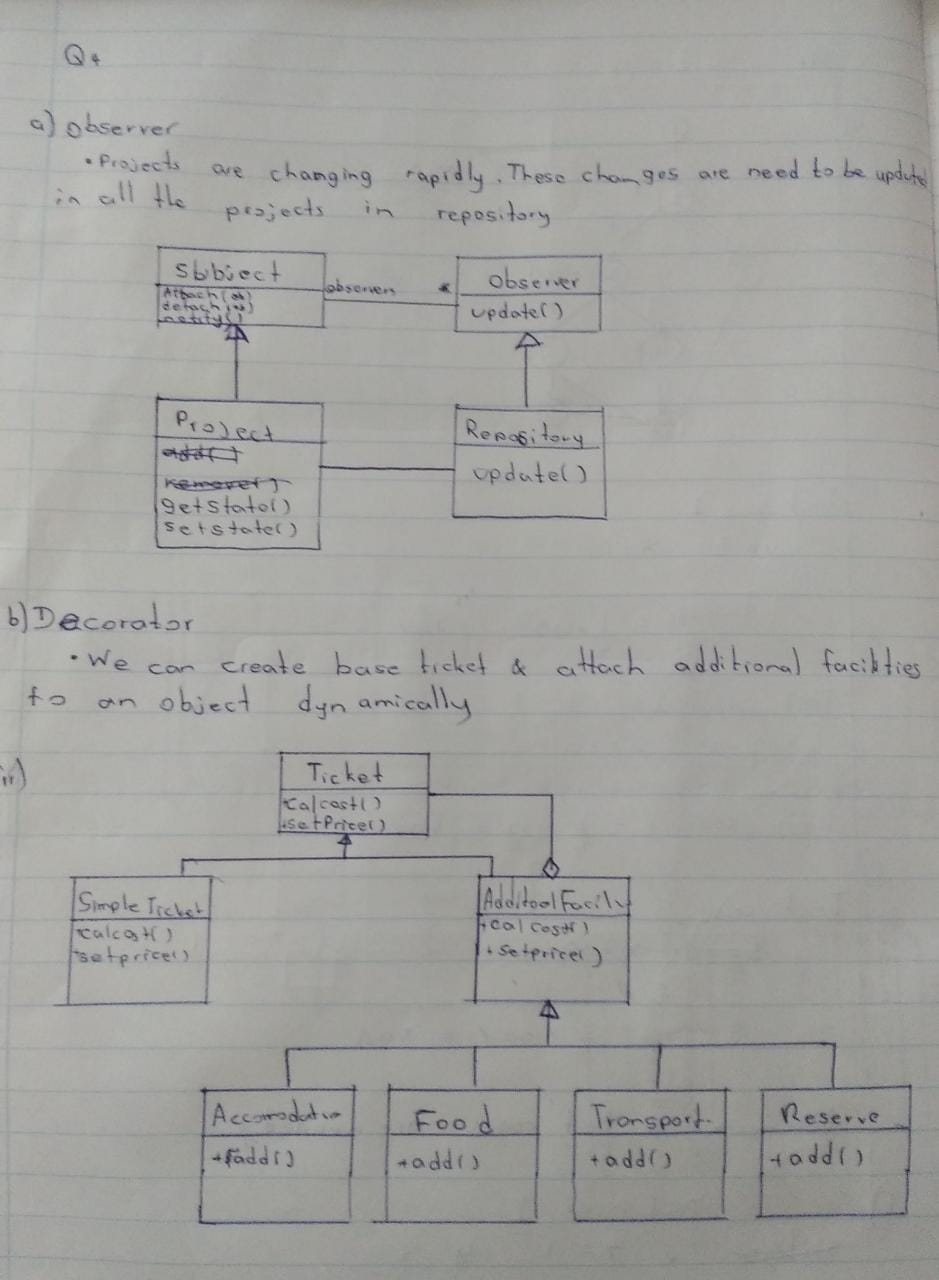 Q4
a) Observer
• Projects are changing rapidly. These changes are need to be updated
in all the projects in repository
Sbbject
Attach(ob)
detach(ob)
notify()
observers *
Observer
update()
Project
add()
remove()
getstate()
setstate()
Repository
update()
b) Decorator
• We can create base ticket & attach additional facilities
to an object dynamically
ii)
Ticket
+calcost()
+setPrice()
Simple Ticket
+calcost()
+setprice()
+calcost()
+setprice()
Food
+add()
Transport.
+add()
Reserve
+add()
+add()